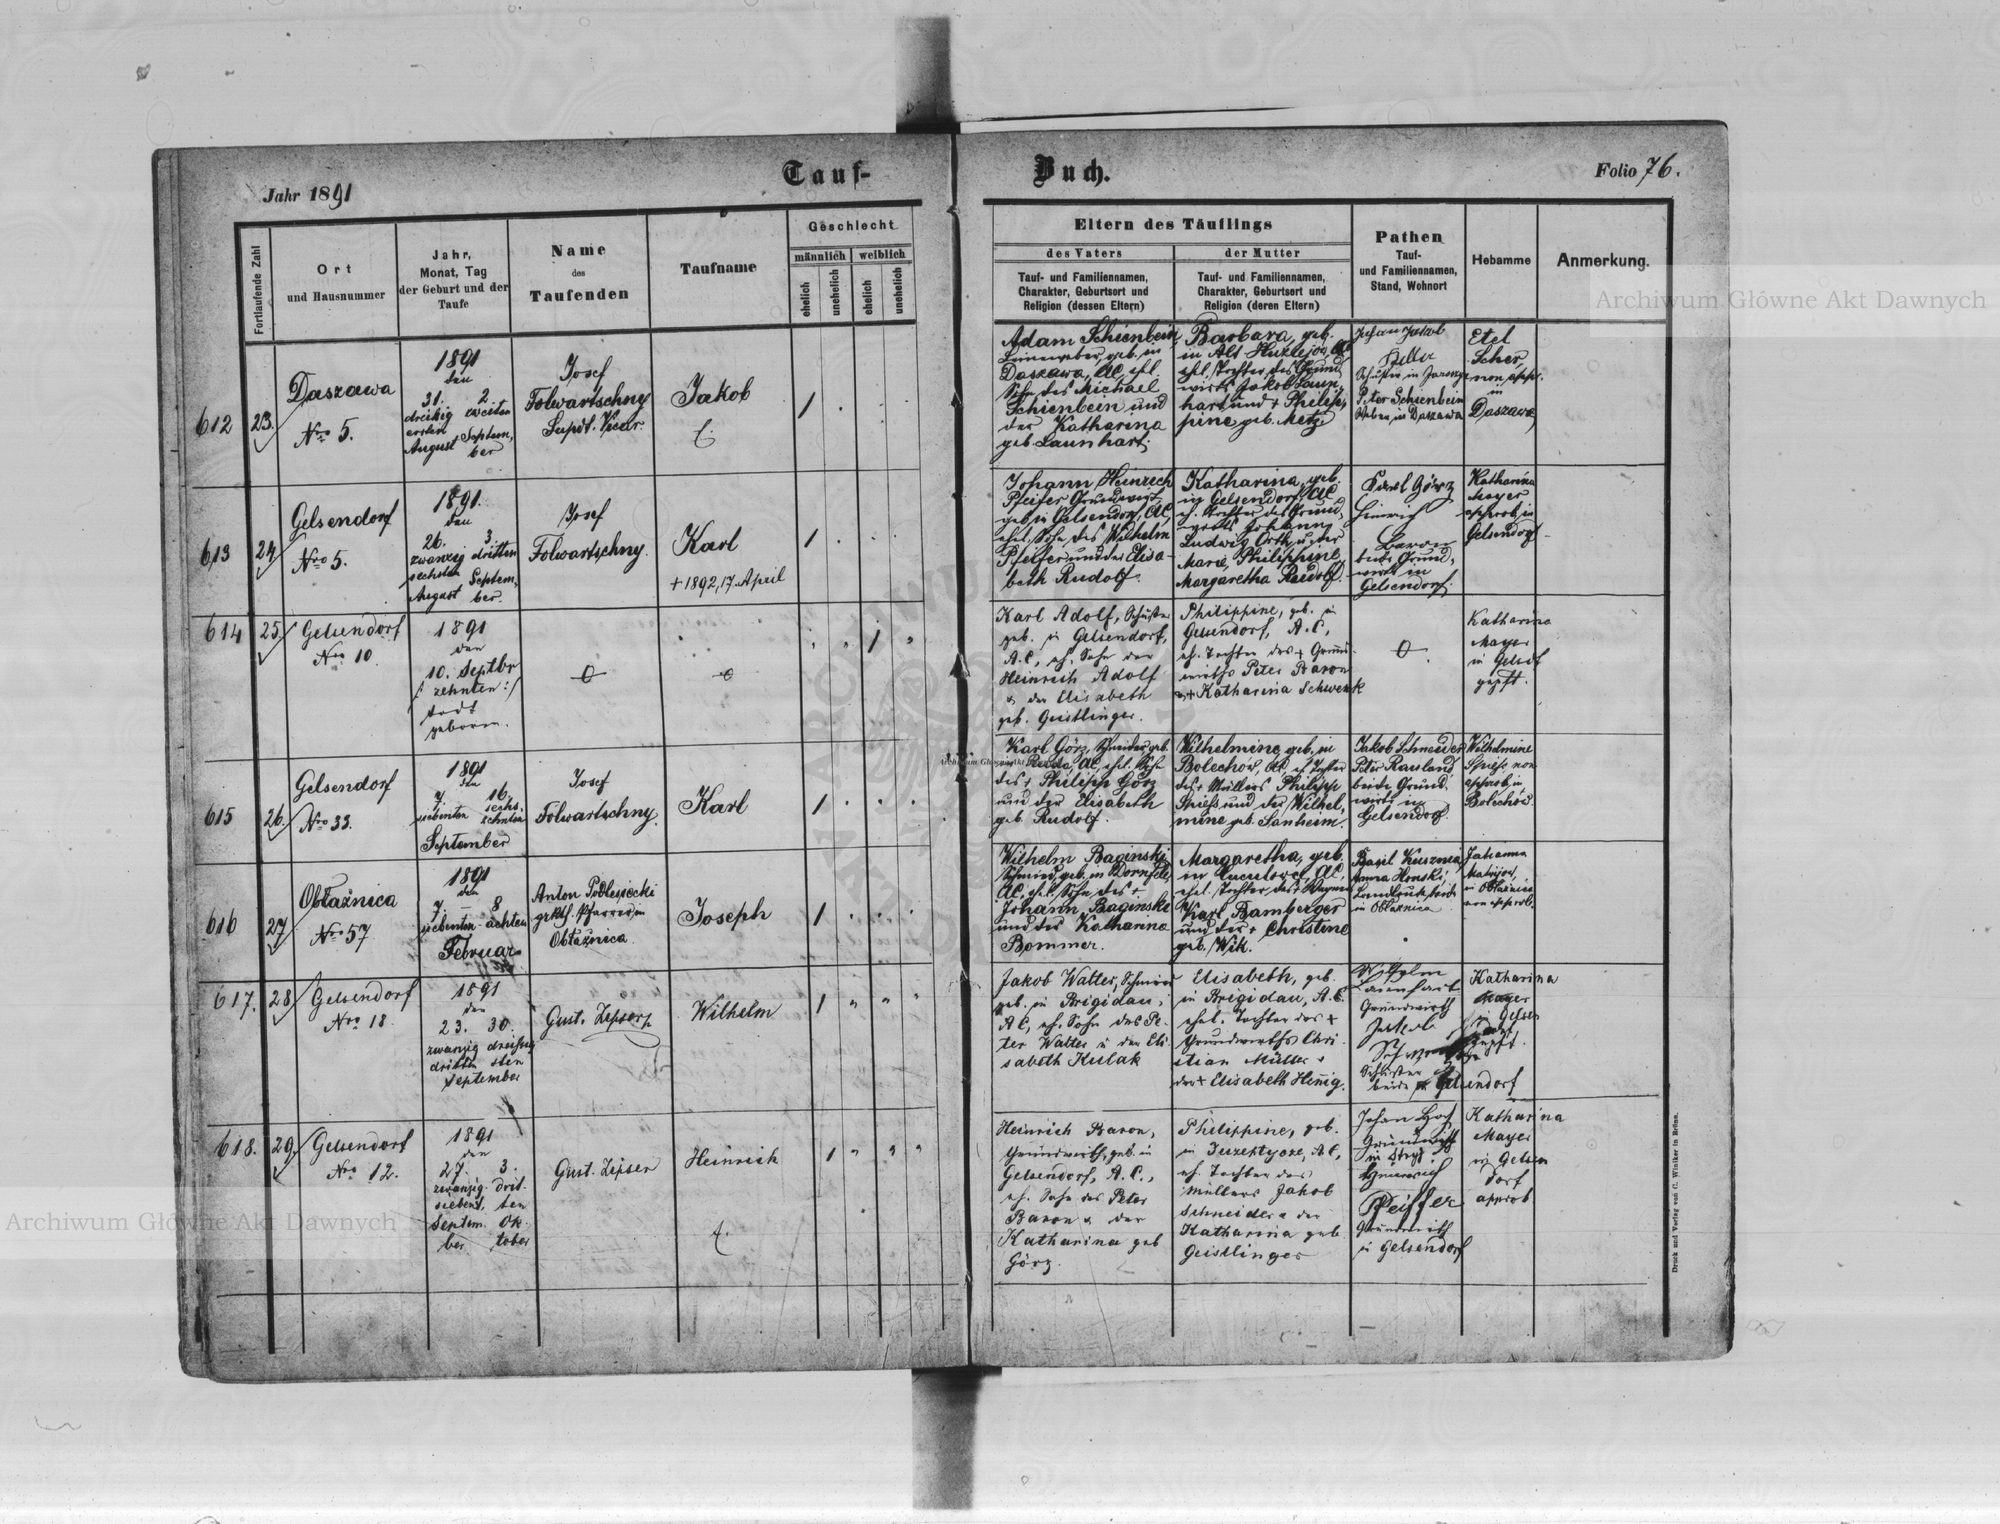 Tauf-
Buch.
Jahr 1891
Folio 76.
Fortlaufende Zahl
Ort
und Hausnummer
Jahr,
Monat, Tag
der Geburt und der
Taufe
Name
des
Taufenden
Taufname
Geschlecht
männlich
weiblich
ehelich
unehelich
ehelich
unehelich
Eltern des Täuflings
des Vaters
der Mutter
Tauf- und Familiennamen,
Charakter, Geburtsort und
Religion (dessen Eltern)
Tauf- und Familiennamen,
Charakter, Geburtsort und
Religion (deren Eltern)
Pathen
Tauf-
und Familiennamen,
Stand, Wohnort
Hebamme
Anmerkung.
612
23.
Daszawa
Nro 5.
1891
den
31. 2.
dreißig zweiten
ersten
August Septem,
ber
Josef
Folwartschny
Supdt. Vicar
Jakob
1
Adam Schienbein
Leinenweber, geb. in
Daszawa, AC, ehl.
Sohn des Michael
Schienbein und
der Katharina
geb. Launhart.
Barbara, geb.
in Alt
ehl. Tochter des Grund
wirts Jakob Laun,
hart und + Philip,
pine geb. Metz
Johan Jakob
Peter Schienbein
Weber, in Daszawa
Etel
Scher,
non appr.
in
Daszawa
613
24
Gelsendorf
Nro 5.
1891.
den
26. 3.
zwanzig dritten
sechsten
August Septem,
ber.
Josef
Folwartschny.
Karl
+ 1892, 17. April
1
Johann Heinrich
Pfeifer Grundwirt
geb in Gelsendorf, AC,
ehel. Sohn des Wilhelm
Pfeifer und der Elisa-
beth Rudolf.
Katharina, geb.
in Gelsendorf, AC
eh. Tochter des Grund,
wirts Johann
Ludwig Orth u der
Marie Philippine
Margaretha Rudolf.
Karl Görz
Heinrich
Baron
beide Grund,
wirte in
Gelsendorf.
Katharina
Mayer
approb, in
Gelsendorf
614
25
Gelsendorf
Nro 10
1891
den
10. Septbr
/ zehnten :/
todt
geboren.
1
Karl Adolf, Schuster
geb. in Gelsendorf,
A.C, eh. Sohn des
Heinrich Adolf
u. der Elisabeth
geb. Geistlinger.
Philippine, geb. in
Gelsendorf, A.C,
eh. Tochter des + Grund-
wirths Peter Baron
u + Katharina Schwenk
Katharina
Mayer
in Gelsdf
gepft.
615
26.
Gelsendorf
Nro 33.
1891
den
7. 16.
siebenten sechs,
zehnten
September
Josef
Folwartschny.
Karl
1
Karl Görz, Schneider, geb.
AC, ehl. Sohn
des + Philipp Görz
und der Elisabeth
geb Rudolf.
Wilhelmine, geb. in
Bolechów, AC, eh Tochter
des + Müllers Philipp
Spieß und der Wilhel,
mine geb. Sanheim.
Jakob Schneider
Peter Rauland
beide Grund,
wirte in
Gelsendorf.
Wilhelmine
Spieß non
approb, in
Bolechów.
616
27
Obłaźnica
Nro 57
1891
den
7 – 8
siebenten achten
Februar
Anton Podlesiecki
grkth. Pfarrer, in
Obłaźnica.
Joseph
1
Wilhelm Baginski
Schmied, geb. in Dornfeld,
AC, ehl. Sohn des +
Johann Baginski
und der Katharina
Bommer.
Margaretha, geb.
in AC,
ehl. Tochter des + Wagners
Karl Bamberger
und der + Christine
geb. Wik.
Basil
in Obłaźnica
in Obłaźnica
non approb.
617.
28
Gelsendorf
Nro 18.
1891
den
23. 30.
zwanzig dreißig
dritten sten
September
Gust. Zipser
Wilhelm
1
Jakob Walter, Schmied
geb. in Brigidau,
AC, eh. Sohn des Pe-
ter Walter u der Eli
sabeth Kulak
Elisabeth, geb.
in Brigidau, A.C.
ehel. Tochter des +
Grundwirths Chri-
stian Müller u
der + Elisabeth Hennig.
Wilhelm
Launhart
Grundwirth
Jakob
Schuster
beide in Gelsendorf
Katharina
Mayer
in Gelsen
dorf
gepft.
618.
29
Gelsendorf
Nro 12.
1891
den
27. 3.
zwanzig. drit-
siebent. ten
Septem. Ok-
ber tober
Gust. Zipser
Heinrich
1
Heinrich Baron,
Grundwirth, geb. in
Gelsendorf, A.C.,
eh. Sohn des Peter
Baron u. der
Katharina geb
Görz.
Philippine, geb.
in A.C,
eh. Tochter des
Müllers Jakob
Schneider u der
Katharina geb
Geistlinger
Johan
Grundwirth
in Stryj.
Heinrich
Pfeiffer
Grundwirth
in Gelsendorf
Katharina
Mayer
in Gelsen
dorf
approb
Druck und Verlag von C. Winiker in Brünn.
Archiwum Główne Akt Dawnych
Archiwum Główne Akt Dawnych
Archiwum Główne Akt Dawnych